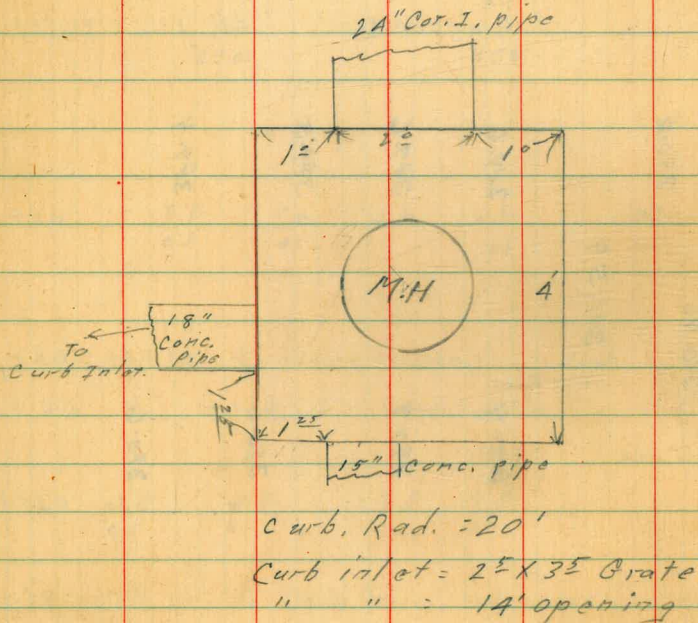 24" Cor. I. pipe
1º 2º 1º
M.H
4'
18"
Conc.
Pipe
To
Curb Inlet.
1 25
1 25
15" Conc. pipe
Curb. Rad. = 20'
Curb inlet = 2 5 X 3 5 Grate
" " = 14' opening